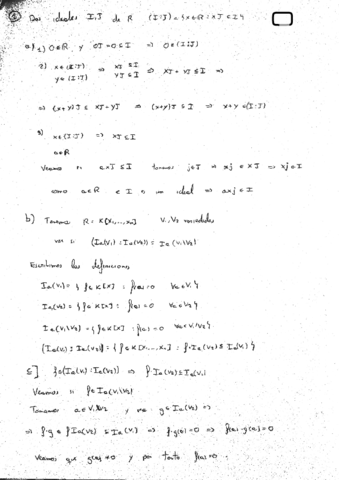 ② Dos ideales I, J de R (I:J) = {x∈R : xJ ⊆ I}
a) 1) 0∈R y 0J = 0 ⊆ I ⇒ 0∈(I:J)
2) x∈(I:J) ⇒ xJ ⊆ I
y∈(I:J) yJ ⊆ I ⇒ xJ + yJ ⊆ I ⇒
⇒ (x+y)J ⊆ xJ + yJ ⇒ (x+y)J ⊆ I ⇒ x+y ∈(I:J)
3) x∈(I:J) ⇒ xJ ⊆ I
a∈R
Veamos si axJ ⊆ I tomamos j∈J ⇒ xj ∈ xJ ⇒ xj ∈ I
como a∈R e I es un ideal ⇒ axj ∈ I
b) Tomamos R = K[x₁,...,xₙ] V₁, V₂ variedades
ver si (Ia(V₁) : Ia(V₂)) = Ia(V₁\V₂)
Escribimos las definiciones
Ia(V₁) = { f∈K[x] : f(a) = 0 ∀a∈V₁ }
Ia(V₂) = { f∈K[x] : f(a) = 0 ∀a∈V₂ }
Ia(V₁\V₂) = { f∈K[x] : f(a) = 0 ∀a∈V₁\V₂ }
(Ia(V₁) : Ia(V₂)) = { f∈K[x₁,...,xₙ] : f·Ia(V₂) ⊆ Ia(V₁) }
⊆] f∈(Ia(V₁) : Ia(V₂)) ⇒ f·Ia(V₂) ⊆ Ia(V₁)
Veamos si f∈Ia(V₁\V₂)
Tomamos a∈V₁\V₂ y sea g∈Ia(V₂) ⇒
⇒ f·g ∈ f Ia(V₂) ⊆ Ia(V₁) ⇒ f·g(a) = 0 ⇒ f(a)·g(a) = 0
Veamos que g(a) ≠ 0 y por tanto f(a) = 0.